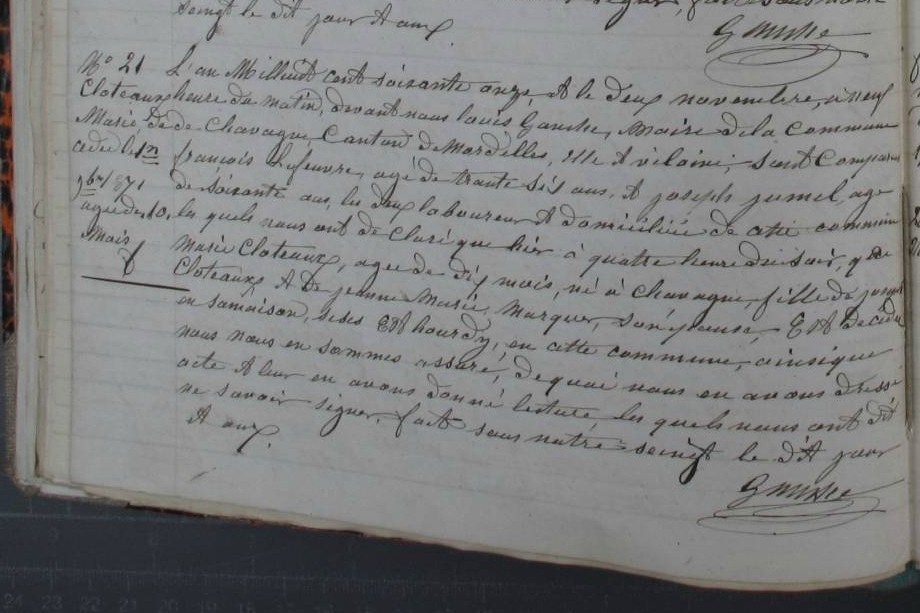 seingt le dit jour A aux
Gausche
N° 21
Cloteaux
Marie, de
cedée le 1er
9bre 1871
agée de 10
Mais
L'an Milhuit cent soixante onze, A le deux novembre, a neuf
heure du matin, devant nous louis Gausche, Maire dela Commune
de Chavagne, Canton de Mordelles, Ille A vilaine; sont Comparus
françois Lefeuvre, agé de trante six ans, A joseph jumel, agé
de soixante ans, les deux laboureur A domiciliée de cette commune
les quels nous ont de claré que hier à quattre heure du soir, que
Marie Cloteaux, agée de dix mois, né à Chavagne, fille de joseph
Cloteaux A De jeanne Marie Marquer, son épouse, Est Décédée
en samaison, sises En hourdy, en cette commune, ainsique
nous nous en sommes assuré, dequoi nous en avons dressé
acte A leur en avons donné lecture les quels nous ont dit
ne savoir signer, fait sous notre seingt le dit jour
A aux.
Gausche